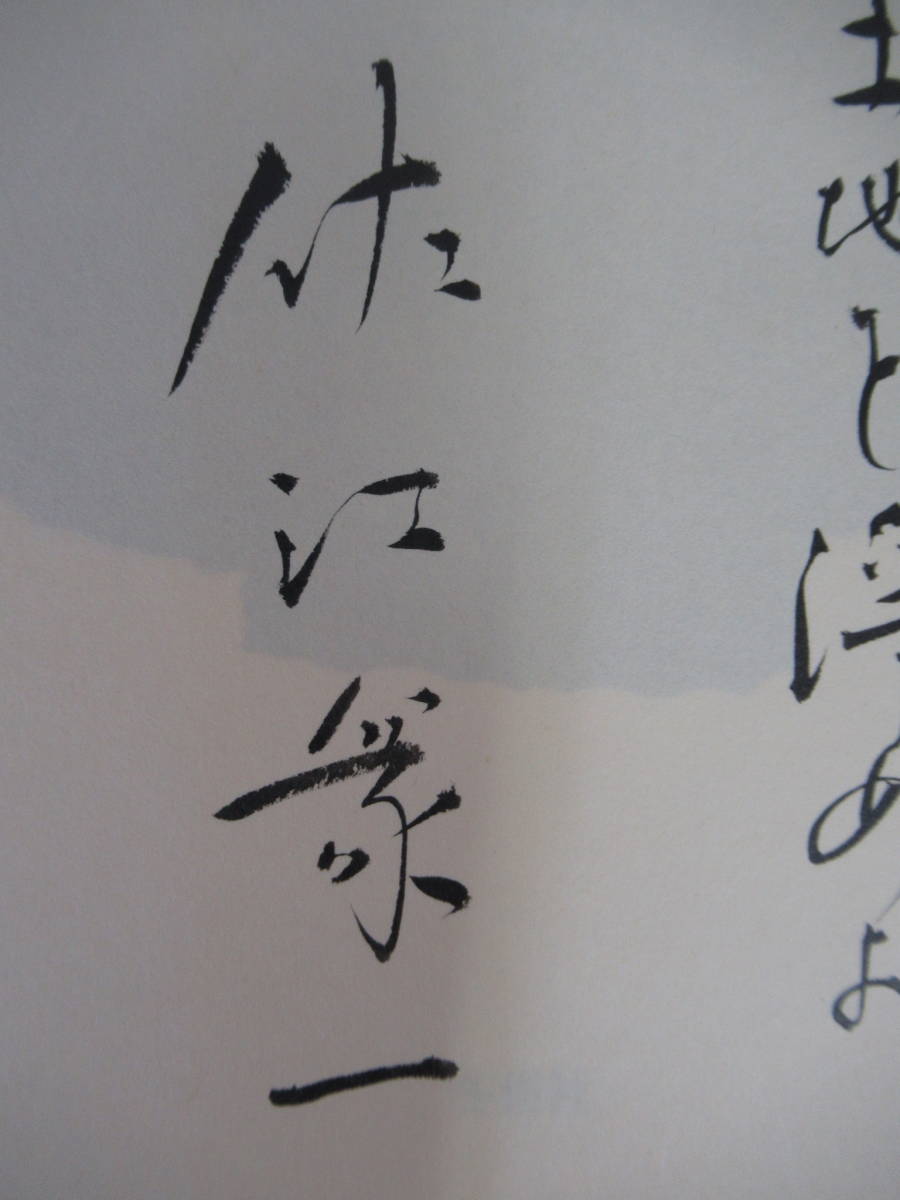 土地と めよ
佐江衆一